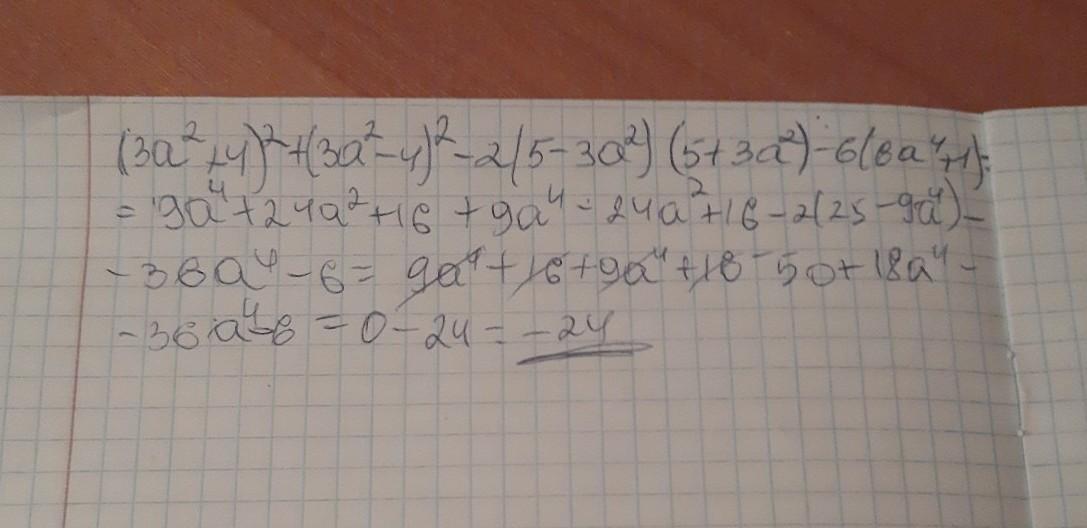 (3a²+4)²+(3a²-4)²-2(5-3a²)(5+3a²)-6(6a⁴+1)=
=9a⁴+24a²+16+9a⁴-24a²+16-2(25-9a⁴)-
-36a⁴-6=9a⁴+16+9a⁴+16-50+18a⁴-
-36a⁴-6=0-24=-24